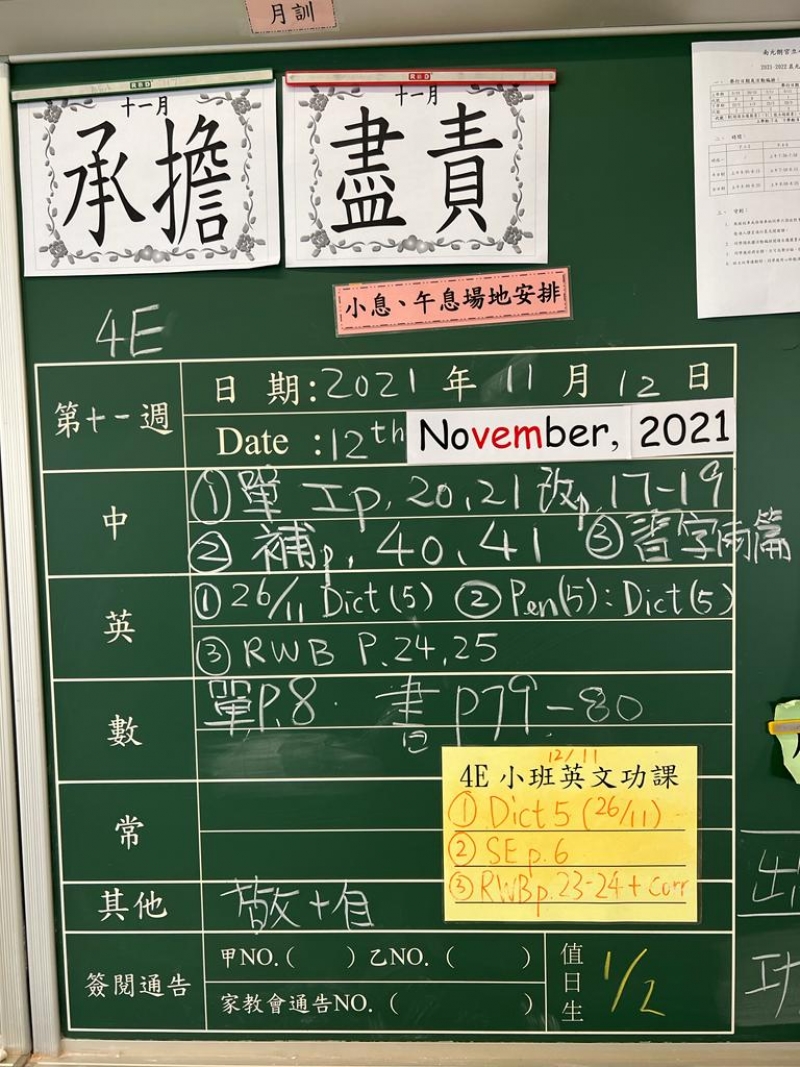 月訓
十一月
承擔
十一月
盡責
小息、午息場地安排
4E
第十一週
日 期:2021 年 11 月 12 日
Date :12th November, 2021
中
① 單 工p.20,21 改p.17-19
② 補p.40,41 ③ 書字兩篇
英
① 26/11 Dict(5) ② Pen(5): Dict(5)
③ RWB P.24,25
數
單P.8. 書 P79-80
常
12/11
4E 小班英文功課
① Dict 5 (26/11)
② SE p.6
③ RWB p.23-24 + corr
其他
簽閱通告
甲NO.( ) 乙NO. ( )
家教會通告NO. ( )
值日生
1/2
功